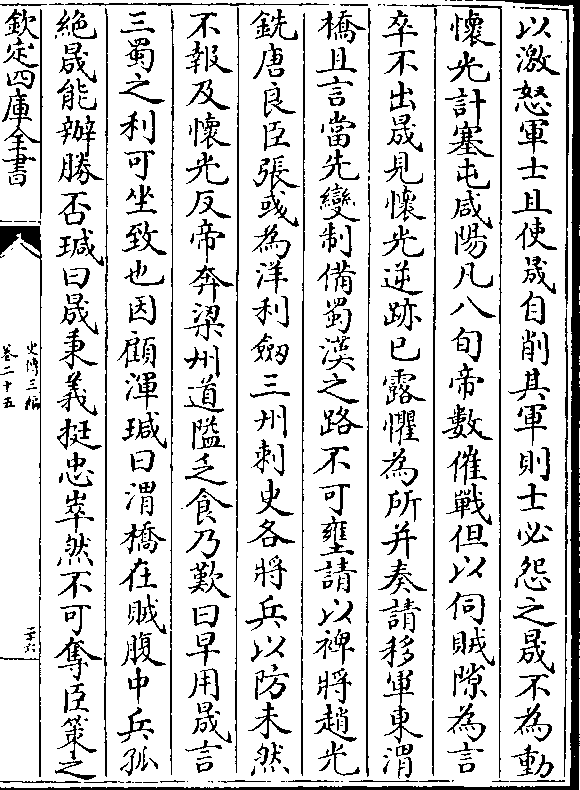 以激怒軍士且使晟自削其軍則士必怨之晟不為動
懷光計塞屯咸陽凡八旬帝數催戰但以伺賊隙為言
卒不出晟見懷光逆跡已露懼為所并奏請移軍東渭
橋且言當先變制備蜀漢之路不可壅請以裨將趙光
銑唐良臣張彧為洋利劒三州刺史各將兵以防未然
不報及懷光反帝奔梁州道隘乏食乃歎曰早用晟言
三蜀之利可坐致也因顧渾瑊曰渭橋在賊腹中兵孤
絶晟能辦勝否瑊曰晟秉義挺忠崒然不可奪臣策之
欽定四庫全書
史傳三編
卷二十五
二十六